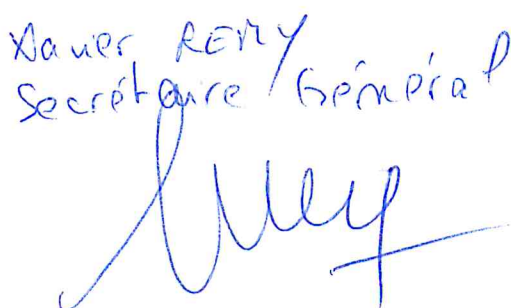 Xavier REMY
Secrétaire Général